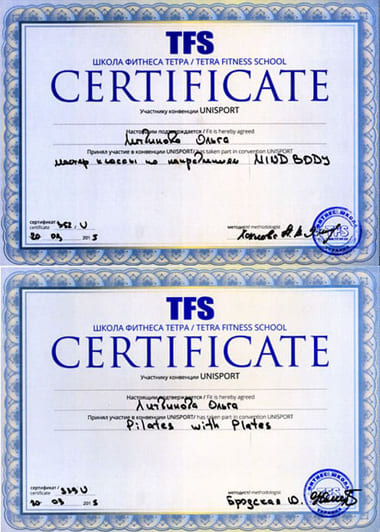 TFS
ШКОЛА ФИТНЕСА ТЕТРА / TETRA FITNESS SCHOOL
CERTIFICATE
Участнику конвенции UNISPORT
Настоящим подтверждается / Fit is hereby agreed
Литвинова Ольга
Принял участие в конвенции UNISPORT/ has taken part in convention UNISPORT
мастер классы по направлениям MIND BODY
сертификат /
certificate
методист/ methodologist
20 03 2015
TFS
ШКОЛА ФИТНЕСА ТЕТРА / TETRA FITNESS SCHOOL
CERTIFICATE
Участнику конвенции UNISPORT
Настоящим подтверждается / Fit is hereby agreed
Литвинова Ольга
Принял участие в конвенции UNISPORT/ has taken part in convention UNISPORT
Pilates with Plates
сертификат /
certificate
методист/ methodologist
20 03 2015
Бродская Ю.